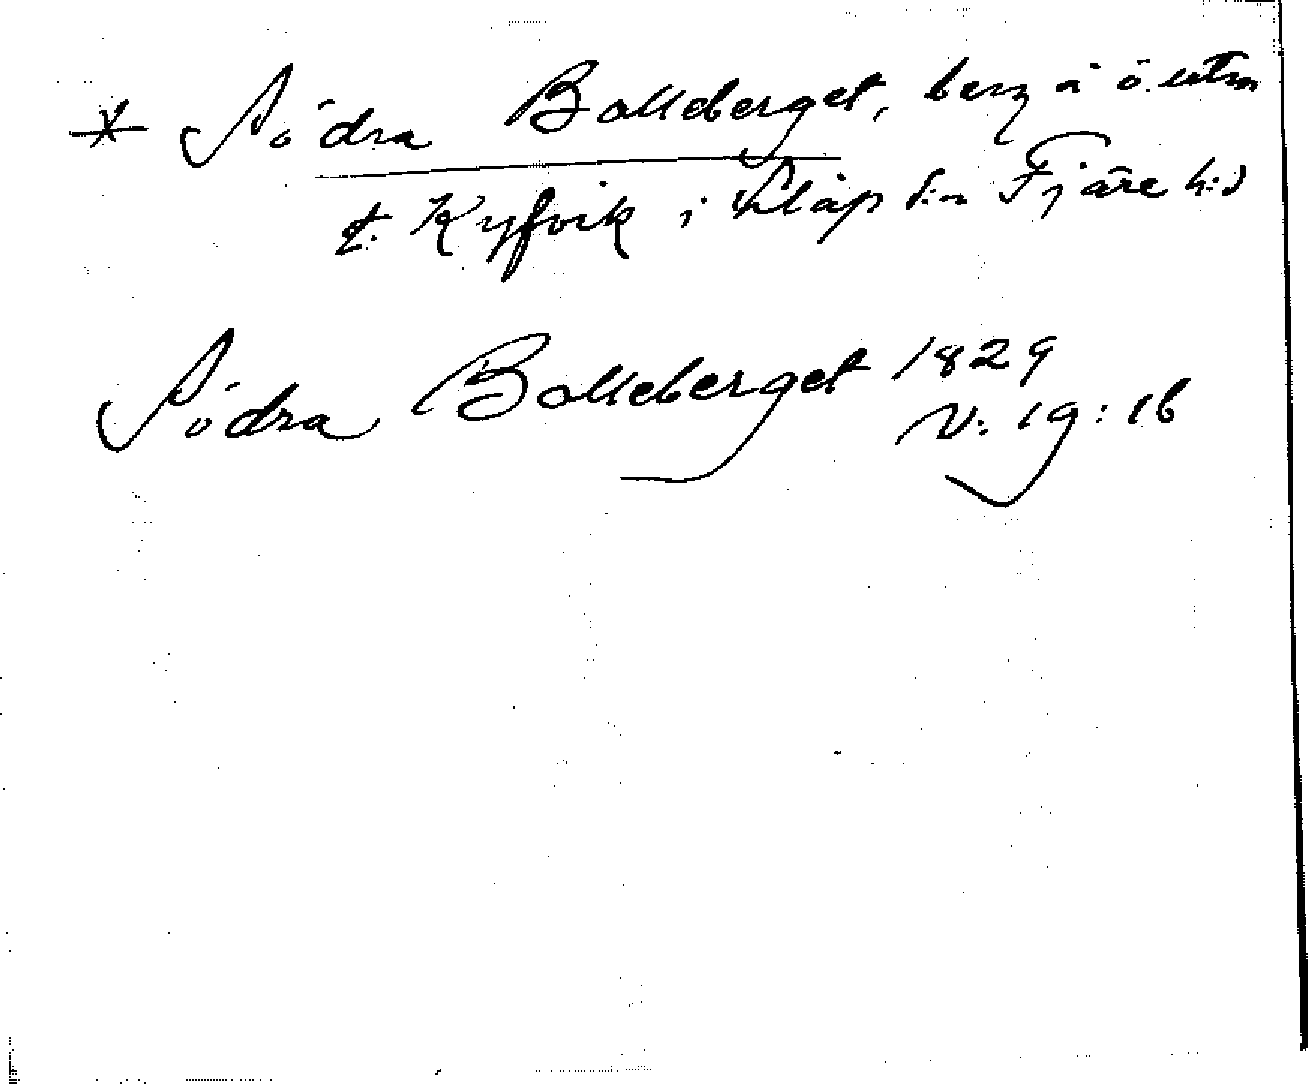 * Södra Bolleberget, berg å ö. utm
t. Kyfvik i Släp s:n Fjäre h:d
Södra Bolleberget 1829
V: 19: 16